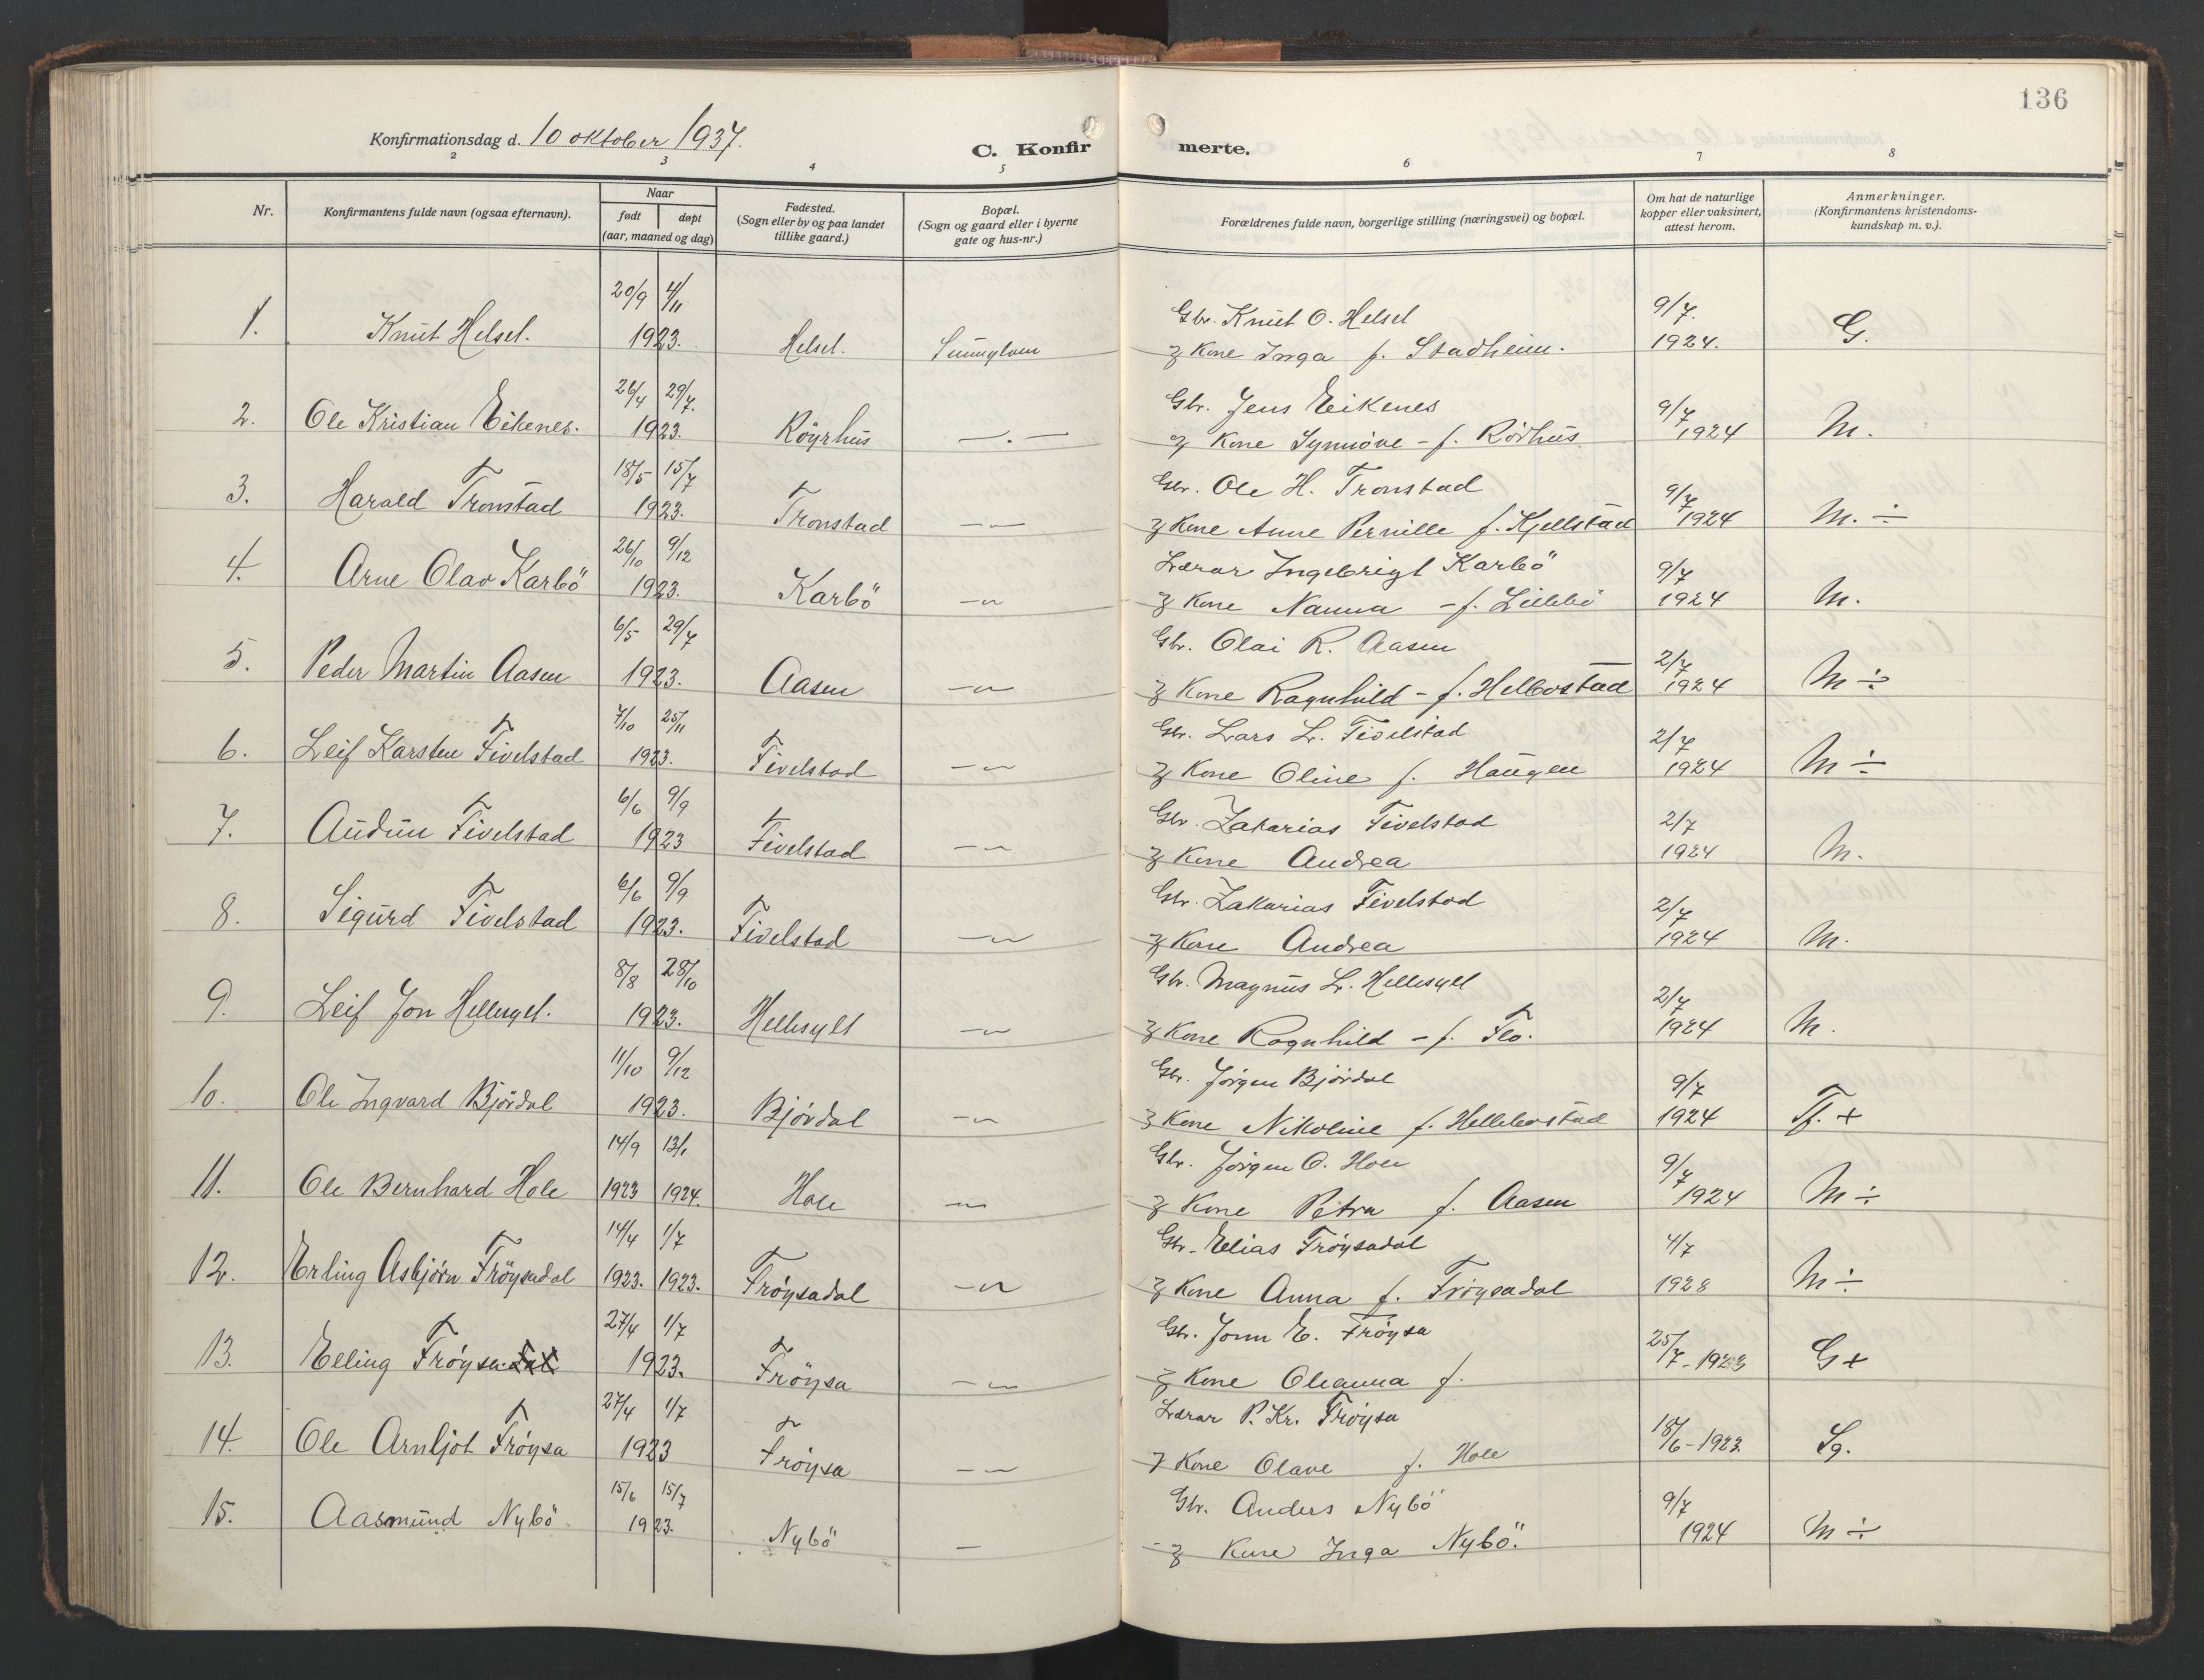 136
Konfirmationsdag d. 10 oktober 1937.
C. Konfir
merte.
2 3 4 5 6 7 8
Nr.
Konfirmantens fulde navn (ogsaa efternavn).
Naar
født døpt
(aar, maaned og dag)
Fødested.
(Sogn eller by og paa landet
tillike gaard.)
Bopæl.
(Sogn og gaard eller i byerne
gate og hus-nr.)
Forældrenes fulde navn, borgerlige stilling (næringsvei) og bopæl.
Om hat de naturlige
kopper eller vaksinert,
attest herom.
Anmerkninger.
(Konfirmantens kristendoms-
kundskap m. v.).
20/9 4/11 Gbr. Knut O. Helset 9/7.
1. Knut Helset. 1923. Helset. Sunnylven & Kone Inga f. Stadheim. 1924. G.
26/4 29/7. Gbr. Jens Eikenes 9/7
2. Ole Kristian Eikenes. 1923. Röyrhus — . — & Kone Synnöve - f. Rörhus 1924 M.
18/5 15/7 Gbr. Ole H. Tronstad 9/7
3. Harald Tronstad 1923. Tronstad — & Kone Anne Pernille f. Kjellstad 1924 M. ÷
26/10 9/12 Lærar Ingebrigt Karbö 9/7
4. Arne Olav Karbö 1923. Karbö —"— & Kone Nanna - f. 1924 M.
6/5 29/7 Gbr. Olai R. Aasen 2/7
5. Peder Martin Aasen 1923. Aasen —"— & Kone Ragnhild - f. Hellbostad 1924 M ÷
7/10 25/11 Gbr. Lars L. Fivelstad 2/7
6. Leif Karsten Fivelstad 1923. Fivelstad —"— & Kone Oline f. Haugen 1924 M ÷
6/6 9/9 Gbr. Zakarias Fivelstad 2/7
7. Audun Fivelstad 1923 Fivelstad —"— & Kone Andrea 1924 M.
6/6 9/9 Gbr. Zakarias Fivelstad 2/7
8. Sigurd Fivelstad 1923. Fivelstad —"— & Kone Andrea 1924 M.
8/8 28/10 Gbr. Magnus L. Hellesylt 2/7
9. Leif Jon Hellesylt. 1923. Hellesylt —"— & Kone Ragnhild - f. Flo. 1924 M.
11/10 9/12 Gbr. Jörgen Björdal 9/7
10. Ole Ingvard Björdal 1923. Björdal —"— & Kone Nikoline f. Hellebostad 1924 Tf. +
14/9 13/1 Gbr. Jörgen O. Hole 9/7
11. Ole Bernhard Hole 1923 1924. Hole —"— & Kone Petra f. Aasen 1924 M ÷
14/4 1/7 Gbr. Elias Fröysadal 4/7
12. Erling Asbjörn Fröysadal 1923. 1923. Fröysadal —"— & Kone Anna f. Fröysadal 1928 M ÷
27/4 1/7 Gbr. Jonn E. Fröysa 25/7 - 1923
13. Elling Fröysa 1923. Fröysa —"— & Kone Oleanna f. G +
27/4 1/7 Lærar P. Kr. Fröysa 18/6 - 1923.
14. Ole Arnljot Fröysa 1923 Fröysa —"— & Kone Olave f. Hole Sg.
15/6 15/7 Gbr. Anders Nybö 9/7
15. Aasmund Nybö 1923. Nybö — & Kone Inga Nybö. 1924 M ÷